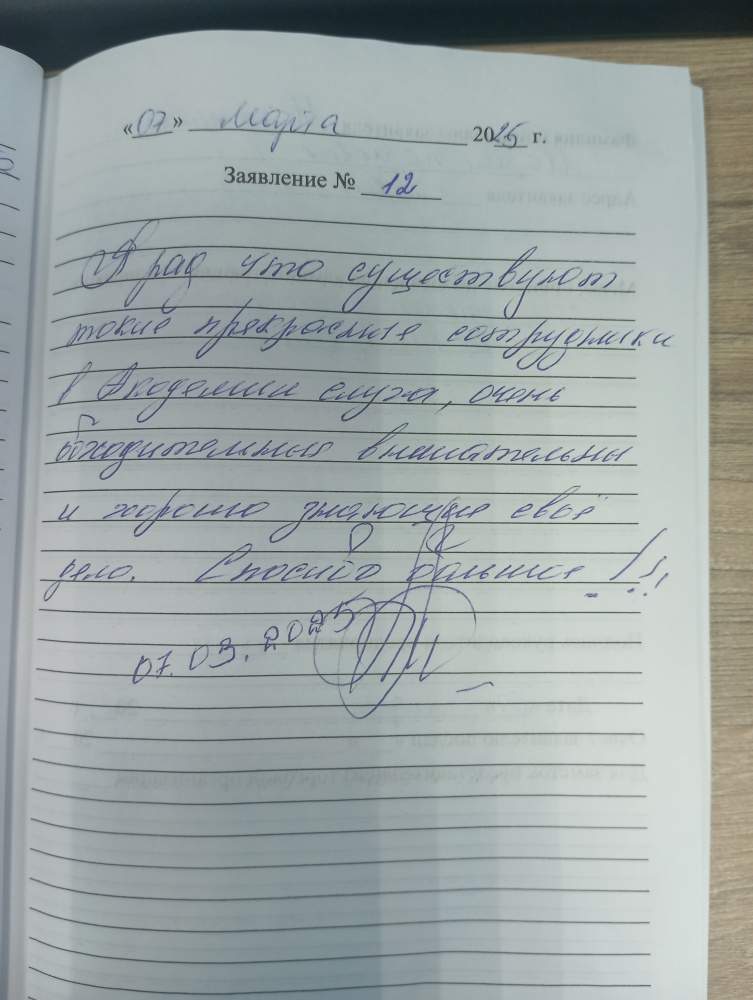 «07» Марта 2025 г.
Заявление № 12
Я рад что существуют
такие прекрасные сотрудники
в Академии слуха, очень
обходительные внимательны
и хорошо знающие своё
дело. Спосибо большое!!!
07.03.2025